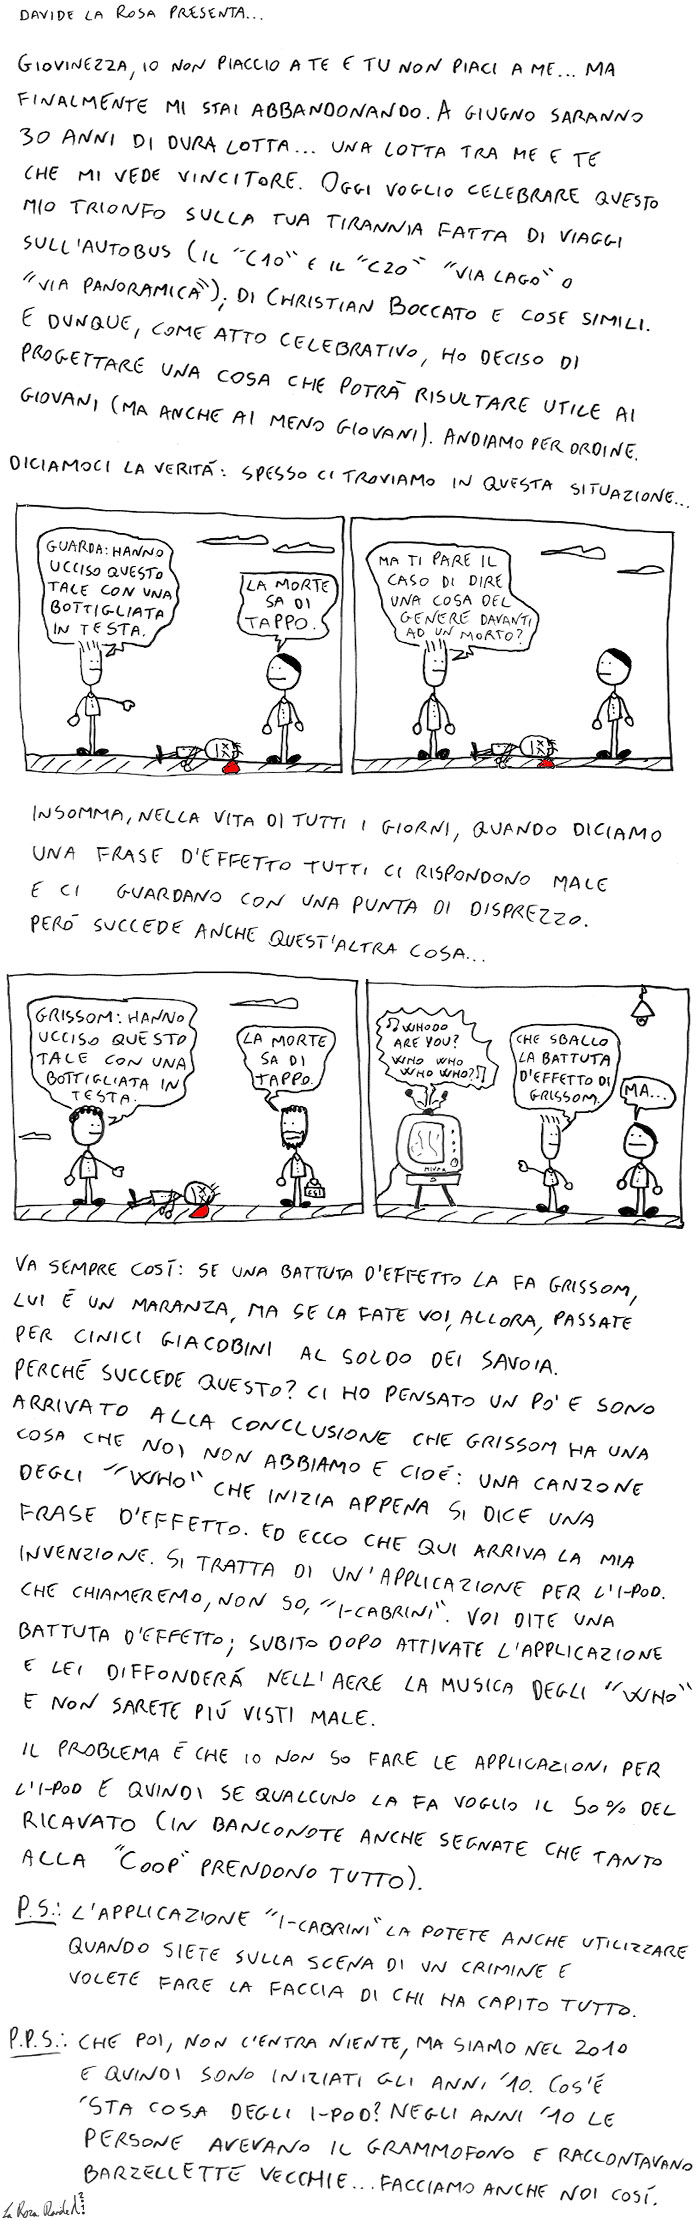 DAVIDE LA ROSA PRESENTA...
GIOVINEZZA, IO NON PIACCIO A TE E TU NON PIACI A ME... MA
FINALMENTE MI STAI ABBANDONANDO. A GIUGNO SARANNO
30 ANNI DI DURA LOTTA... UNA LOTTA TRA ME E TE
CHE MI VEDE VINCITORE. OGGI VOGLIO CELEBRARE QUESTO
MIO TRIONFO SULLA TUA TIRANNIA FATTA DI VIAGGI
SULL'AUTOBUS (IL "C10" E IL "C20" "VIA LAGO" O
"VIA PANORAMICA"); DI CHRISTIAN BOCCATO E COSE SIMILI.
E DUNQUE, COME ATTO CELEBRATIVO, HO DECISO DI
PROGETTARE UNA COSA CHE POTRÀ RISULTARE UTILE AI
GIOVANI (MA ANCHE AI MENO GIOVANI). ANDIAMO PER ORDINE.
DICIAMOCI LA VERITÁ: SPESSO CI TROVIAMO IN QUESTA SITUAZIONE...
GUARDA: HANNO
UCCISO QUESTO
TALE CON UNA
BOTTIGLIATA
IN TESTA.
LA MORTE
SA DI
TAPPO.
MA TI PARE IL
CASO DI DIRE
UNA COSA DEL
GENERE DAVANTI
AD UN MORTO?
INSOMMA, NELLA VITA DI TUTTI I GIORNI, QUANDO DICIAMO
UNA FRASE D'EFFETTO TUTTI CI RISPONDONO MALE
E CI GUARDANO CON UNA PUNTA DI DISPREZZO.
PERÓ SUCCEDE ANCHE QUEST'ALTRA COSA...
GRISSOM: HANNO
UCCISO QUESTO
TALE CON UNA
BOTTIGLIATA IN
TESTA.
LA MORTE
SA DI
TAPPO.
CSI
♫ WHOOO
ARE YOU?
WHO WHO
WHO WHO? ♫
MIVAR
CHE SBALLO
LA BATTUTA
D'EFFETTO DI
GRISSOM.
MA...
VA SEMPRE COSÍ: SE UNA BATTUTA D'EFFETTO LA FA GRISSOM,
LUI É UN MARANZA, MA SE LA FATE VOI, ALLORA, PASSATE
PER CINICI GIACOBINI AL SOLDO DEI SAVOIA.
PERCHÉ SUCCEDE QUESTO? CI HO PENSATO UN PO' E SONO
ARRIVATO ALLA CONCLUSIONE CHE GRISSOM HA UNA
COSA CHE NOI NON ABBIAMO E CIOÉ: UNA CANZONE
DEGLI "WHO" CHE INIZIA APPENA SI DICE UNA
FRASE D'EFFETTO. ED ECCO CHE QUI ARRIVA LA MIA
INVENZIONE. SI TRATTA DI UN'APPLICAZIONE PER L'I-POD.
CHE CHIAMEREMO, NON SO, "I-CABRINI". VOI DITE UNA
BATTUTA D'EFFETTO; SUBITO DOPO ATTIVATE L'APPLICAZIONE
E LEI DIFFONDERÁ NELL'AERE LA MUSICA DEGLI "WHO"
E NON SARETE PIÚ VISTI MALE.
IL PROBLEMA É CHE IO NON SO FARE LE APPLICAZIONI PER
L'I-POD E QUINDI SE QUALCUNO LA FA VOGLIO IL 50% DEL
RICAVATO (IN BANCONOTE ANCHE SEGNATE CHE TANTO
ALLA "COOP" PRENDONO TUTTO).
P.S.: L'APPLICAZIONE "I-CABRINI" LA POTETE ANCHE UTILIZZARE
QUANDO SIETE SULLA SCENA DI UN CRIMINE E
VOLETE FARE LA FACCIA DI CHI HA CAPITO TUTTO.
P.P.S.: CHE POI, NON C'ENTRA NIENTE, MA SIAMO NEL 2010
E QUINDI SONO INIZIATI GLI ANNI '10. COS'É
'STA COSA DEGLI I-POD? NEGLI ANNI '10 LE
PERSONE AVEVANO IL GRAMMOFONO E RACCONTAVANO
BARZELLETTE VECCHIE... FACCIAMO ANCHE NOI COSÍ.
La Rosa Davide